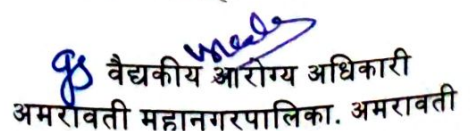 वैद्यकीय आरोग्य अधिकारी
अमरावती महानगरपालिका. अमरावती